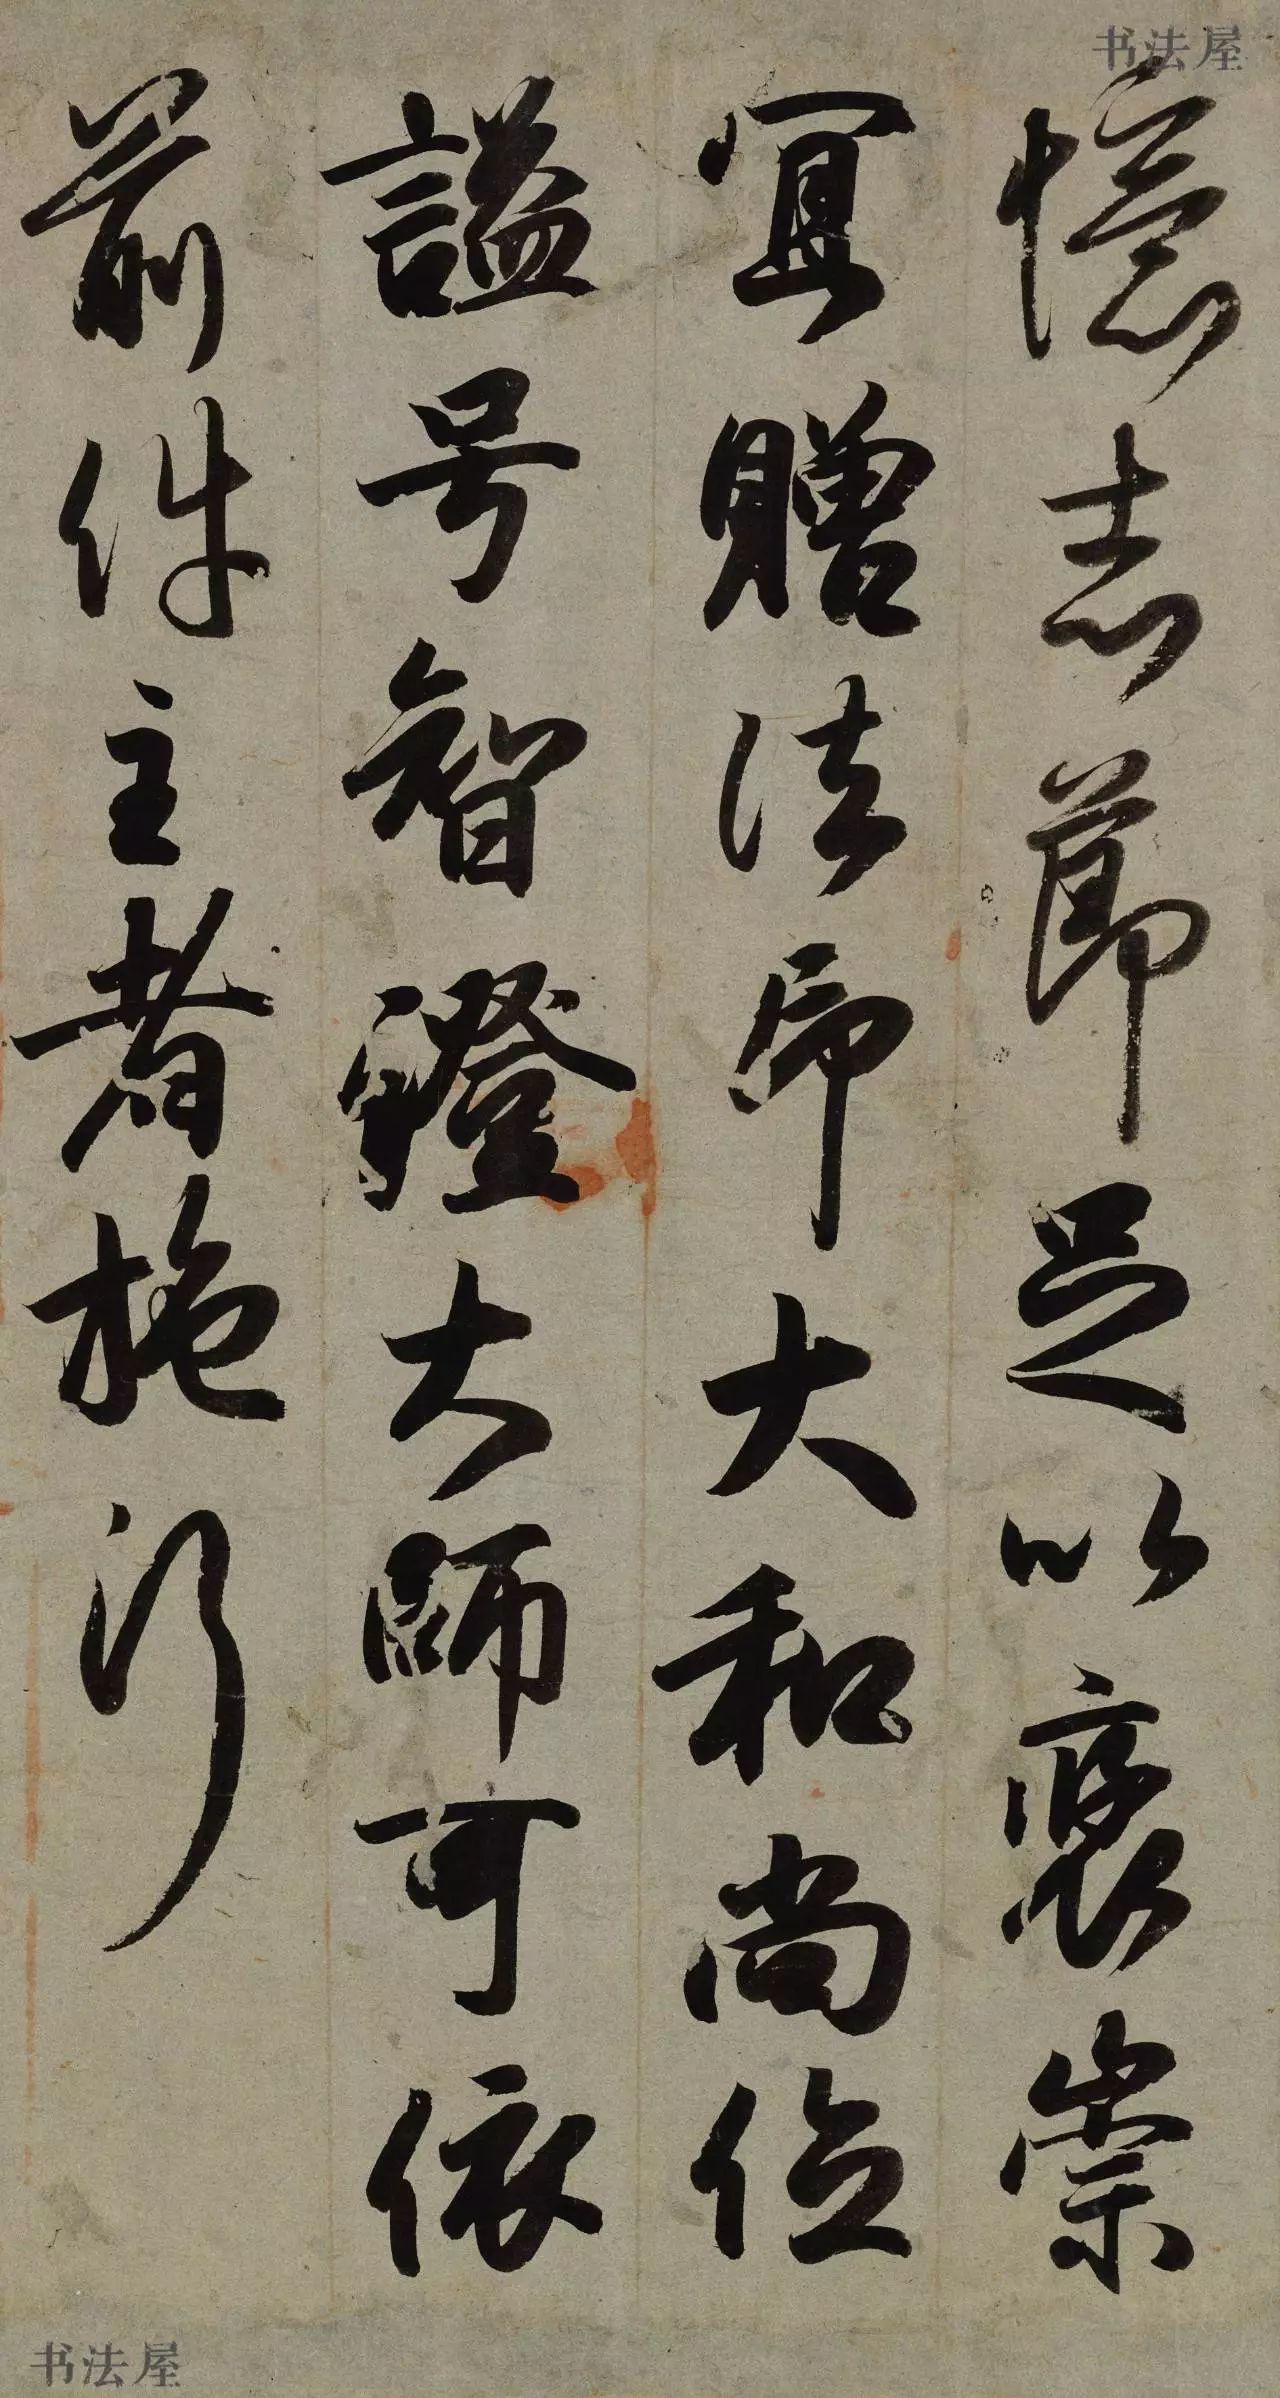 书法屋
憶志節足以褒崇
冝贈法印大和尚位
謚号智證大師可依
前件主者施行
书法屋